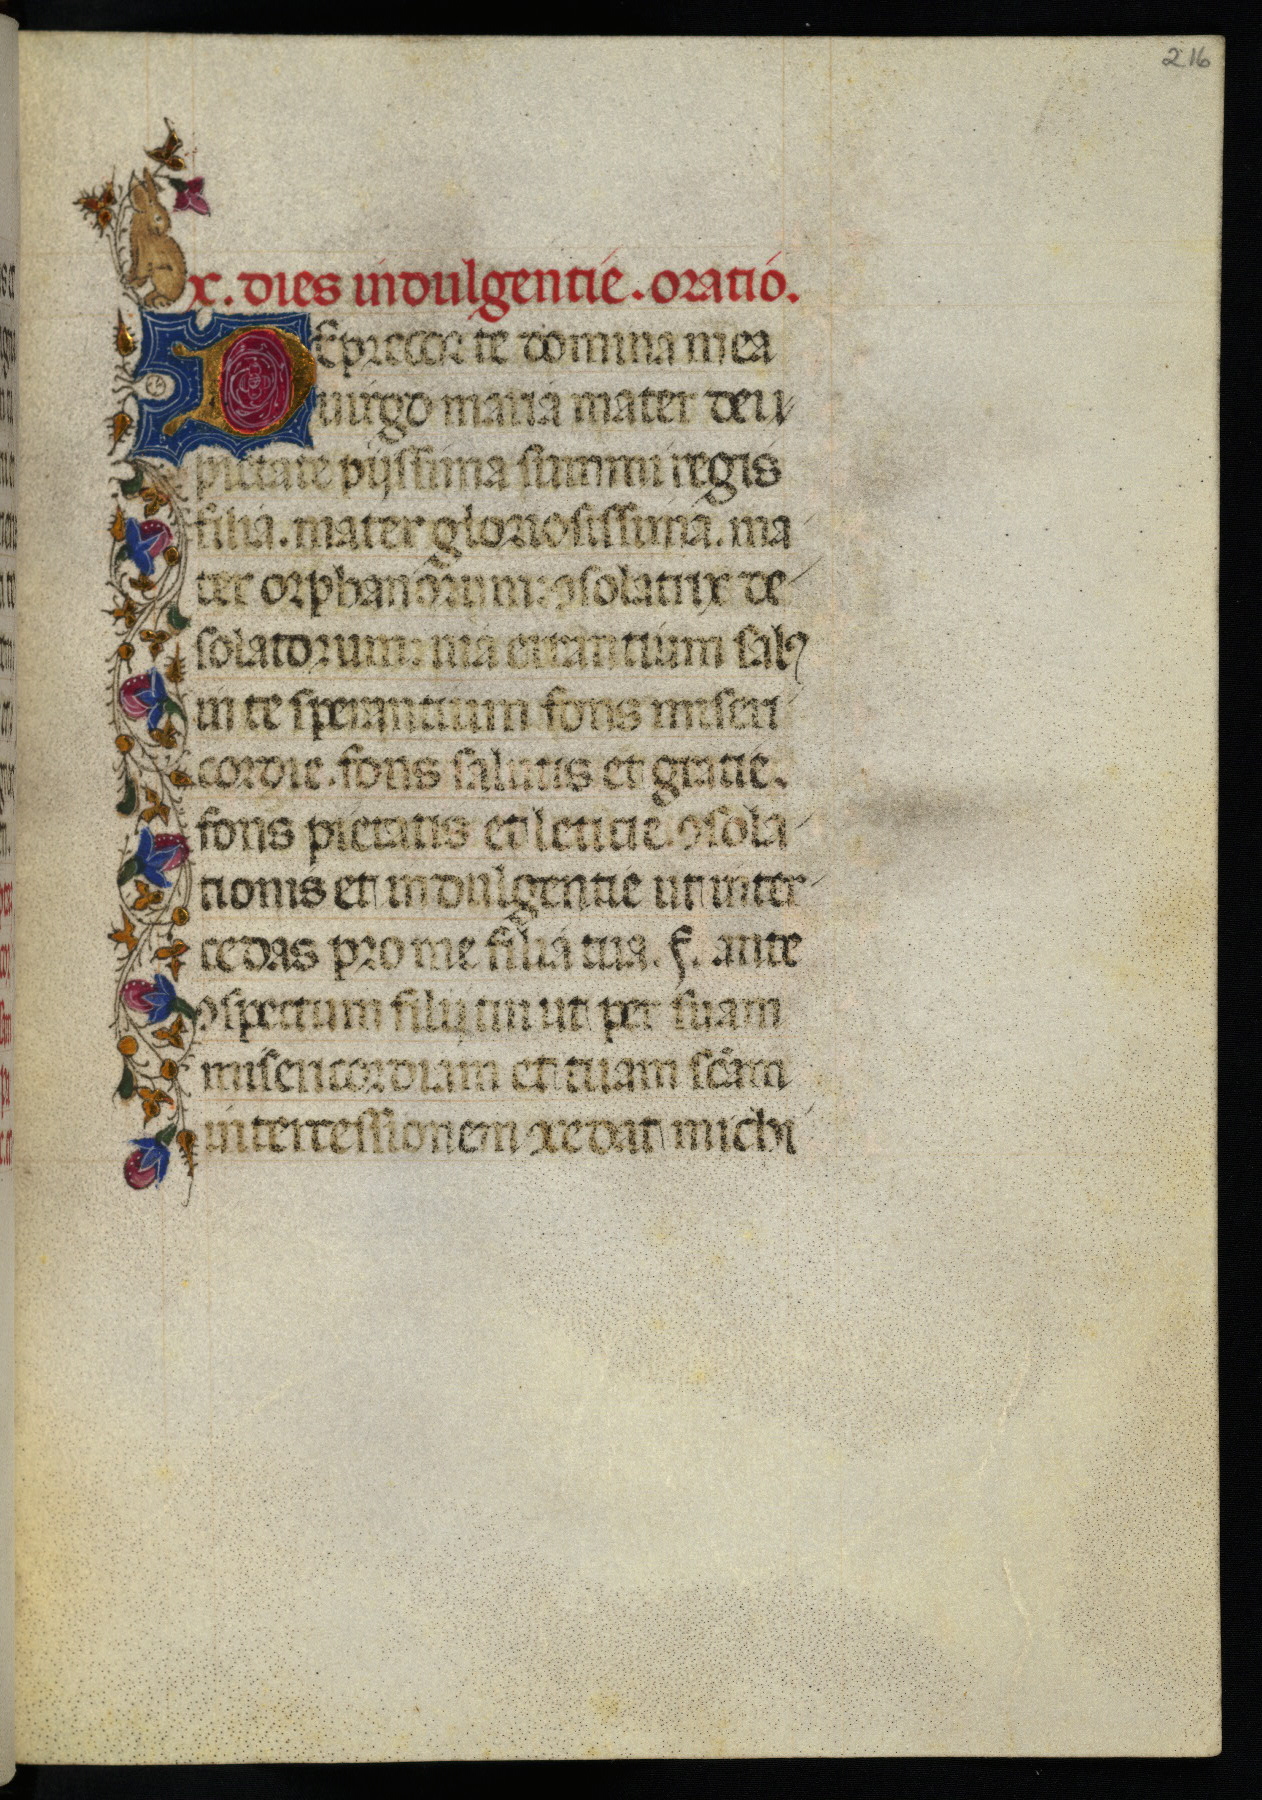 216
x. dies indulgentie. oratio.
Deprecor te domina mea
uirgo maria mater dei
pietate pijssima summi regis
filia. mater gloriosissima. ma
ter orphanorum: ꝯsolatrix de
solatorum: uia errantium salꝰ
in te sperantium fons miseri
cordie. fons salutis et gratie.
fons pietatis et leticie. ꝯsola
tionis et indulgentie ut inter
cedas pro me filia tua. f. ante
ꝯspectum filij tui ut per suam
misericordiam et tuam scām
intercessionem ꝯcedat michi